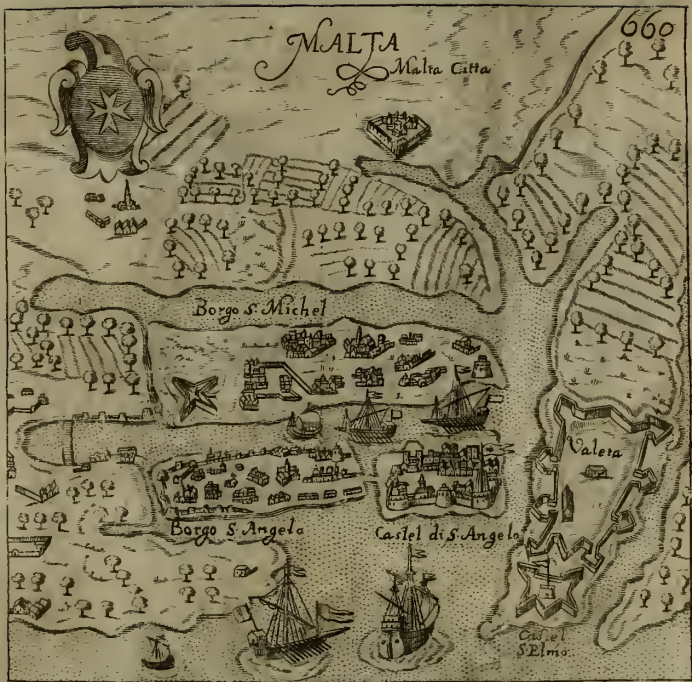 MALTA
660
Malta Citta
Borgo S. Michel
Valeta
Borgo S. Angelo
Castel di S. Angelo
Castel
S. Elmo